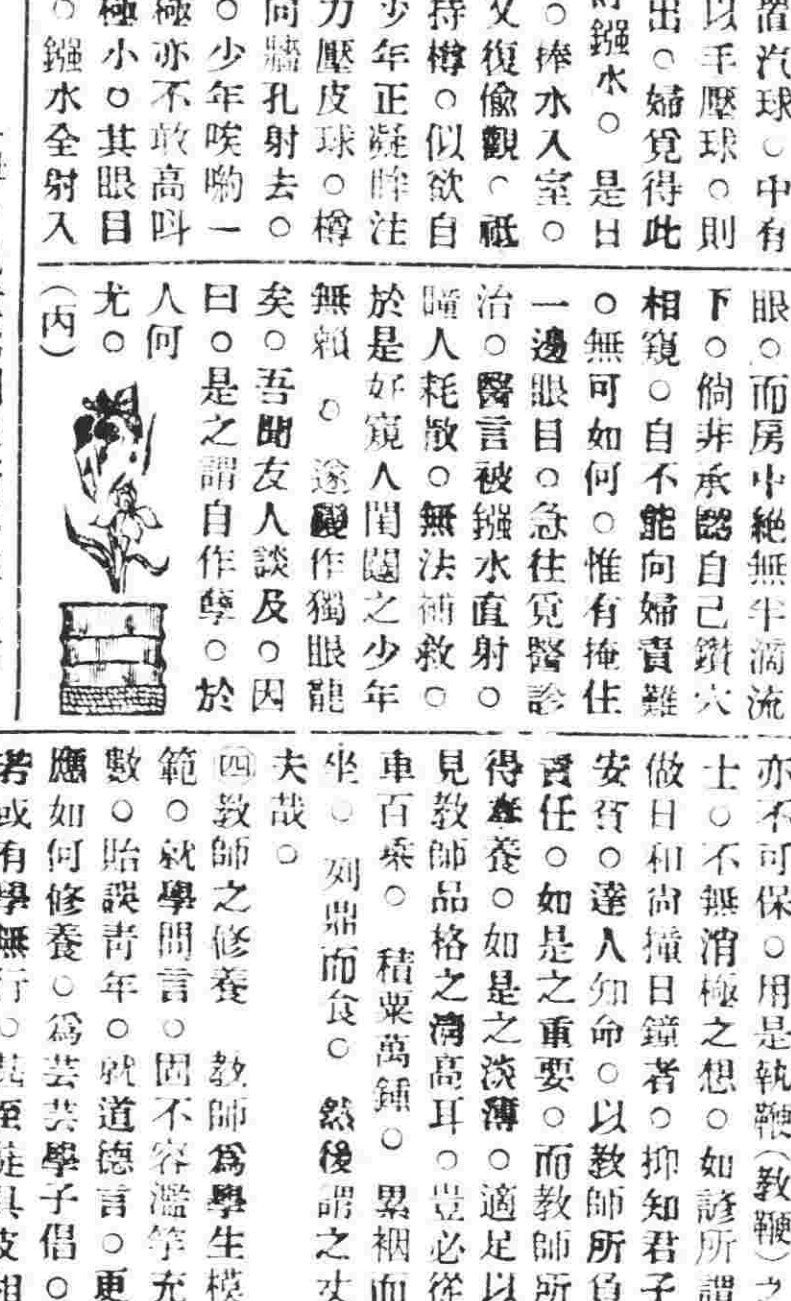 置汽球○中有
以手壓球○則
出○婦覓得此
鏹水○是日
○捧水入室○
又復偷觀○祗
持樽○似欲自
少年正凝眸注
力壓皮球○樽
向牆孔射去○
○少年唉喲一
極亦不敢高叫
極小○其眼目
○鏹水全射入
眼○而房中絕無半滴流
下○倘非承認自己鑽穴
相窺○自不能向婦責難
○無可如何○惟有掩住
一邊眼目○急往覓醫診
治○醫言被鏹水直射○
瞳人耗散○無法補救○
於是好窺人閨閫之少年
無賴○遂變作獨眼龍
矣○吾聞友人談及○因
曰○是之謂自作孽○於
人何
尤○
（丙）
亦不可保○用是執鞭（教鞭）之
士○不無消極之想○如諺所謂
做日和尙撞日鐘者○抑知君子
安貧○達人知命○以教師所負
責任○如是之重要○而教師所
得奉養○如是之淡薄○適足以
見教師品格之淸高耳○豈必從
車百乘○積粟萬鍾○累裀而
坐○列鼎而食○然後謂之丈
夫哉○
㊃教師之修養　教師爲學生模
範○就學問言○固不容濫竽充
數○貽誤靑年○就道德言○更
應如何修養○爲芸芸學子倡○
若或有學無行○甚至徒具皮相